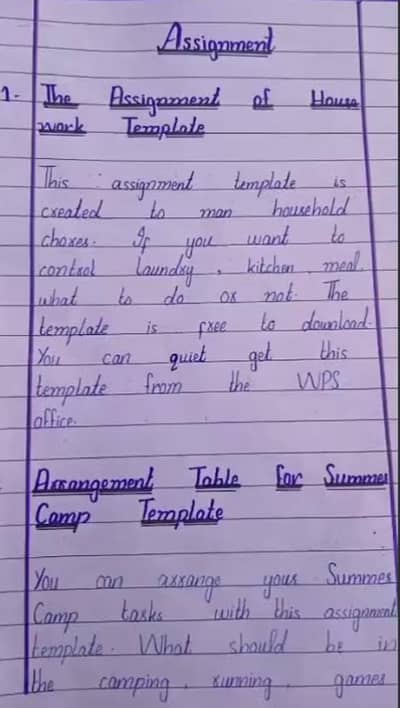 Assignment
1- The Assignment of House
work Template
This assignment template is
created to man household
chores. If you want to
control laundry, kitchen, meal,
what to do or not. The
template is free to download.
You can quiet get this
template from the WPS
office.
Arrangement Table for Summer
Camp Template
You can arrange your Summer
Camp tasks with this assignment
template. What should be in
the camping, running, games